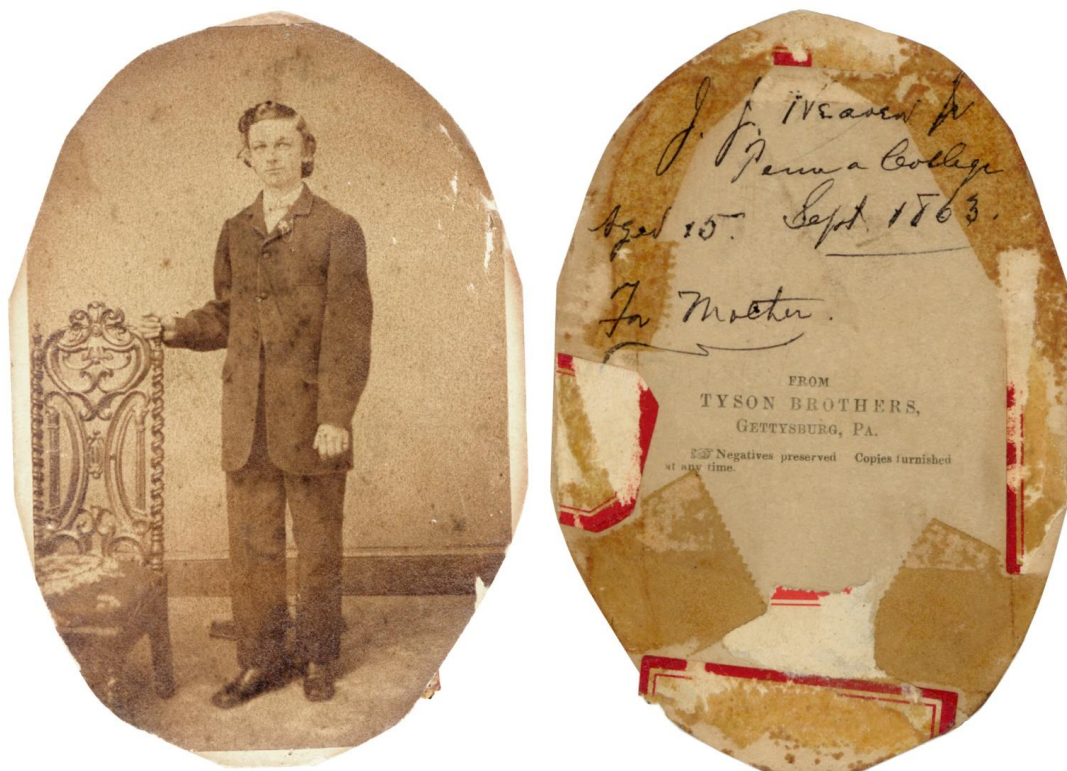 J. J. Weaver Jr
Penna College
Aged 15. Sept. 1863.
For Mother.
FROM
TYSON BROTHERS,
GETTYSBURG, PA.
☞ Negatives preserved Copies furnished
at any time.